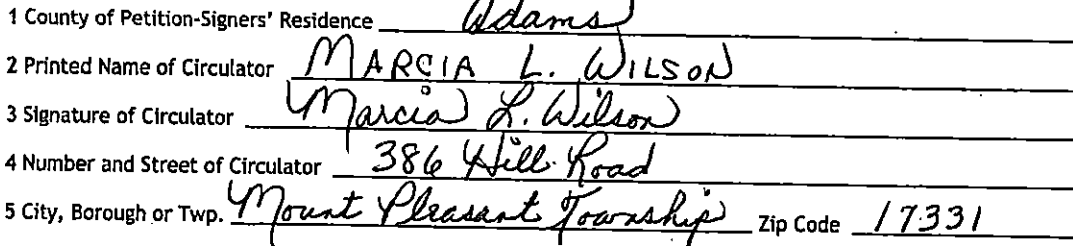 1 County of Petition-Signers' Residence Adams
2 Printed Name of Circulator MARCIA L. WILSON
3 Signature of Circulator Marcia L. Wilson
4 Number and Street of Circulator 386 Hill Road
5 City, Borough or Twp. Mount Pleasant Township Zip Code 17331